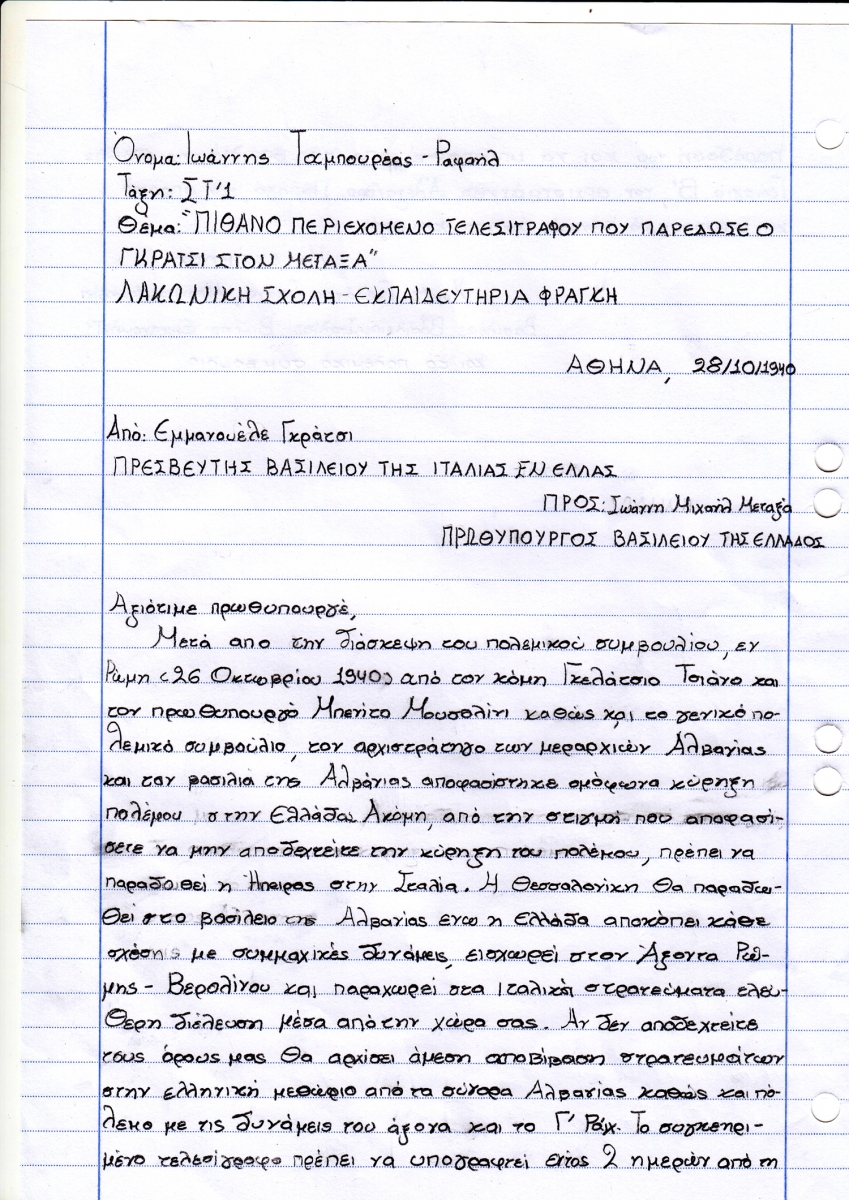 Όνομα: Ιωάννης Ταμπουρέας - Ραφαήλ
Τάξη: ΣΤ'1
Θέμα: "ΠΙΘΑΝΟ ΠΕΡΙΕΧΟΜΕΝΟ ΤΕΛΕΣΙΓΡΑΦΟΥ ΠΟΥ ΠΑΡΕΔΩΣΕ Ο
ΓΚΡΑΤΣΙ ΣΤΟΝ ΜΕΤΑΞΑ"
ΛΑΚΩΝΙΚΗ ΣΧΟΛΗ - ΕΚΠΑΙΔΕΥΤΗΡΙΑ ΦΡΑΓΚΗ
ΑΘΗΝΑ, 28/10/1940
Από: Εμμανουέλε Γκράτσι
ΠΡΕΣΒΕΥΤΗΣ ΒΑΣΙΛΕΙΟΥ ΤΗΣ ΙΤΑΛΙΑΣ ΕΝ ΕΛΛΑΣ
ΠΡΟΣ: Ιωάννη Μιχαήλ Μεταξά
ΠΡΩΘΥΠΟΥΡΓΟΣ ΒΑΣΙΛΕΙΟΥ ΤΗΣ ΕΛΛΑΔΟΣ
Αξιότιμε πρωθυπουργέ,
Μετά απο την διάσκεψη του πολεμικού συμβουλίου, εν
Ρώμη (26 Οκτωβρίου 1940) από τον κόμη Γκελάτσιο Τσιάνο και
τον πρωθυπουργό Μπενίτο Μουσολίνι καθώς και το γενικό πο-
λεμικό συμβούλιο, τον αρχιστράτηγο των μεραρχιών Αλβανίας
και τον βασιλιά της Αλβάνιας αποφασίστηκε ομόφωνα κύρηξη
πολέμου στην Ελλάδα. Ακόμη, από την στιγμή που αποφασί-
σετε να μην αποδεχτείτε την κύρηξη του πολέμου, πρέπει να
παραδοθεί η Ήπειρος στην Ιταλία. Η Θεσσαλονίκη θα παραδω-
θεί στο βασίλειο της Αλβανίας ενω η Ελλάδα αποκόπει κάθε
σχέσης με συμμαχικές δυνάμεις, εισχωρεί στον Άξοντα Ρώ-
μης - Βερολίνου και παραχωρεί στα Ιταλικά στρατεύματα ελεύ-
θερη διέλευση μέσα από την χώρα σας. Αν δεν αποδεχτείτε
τους όρους μας θα αρχίσει άμεση αποβίβαση στρατευμάτων
στην ελληνική μεθώριο από τα σύνορα Αλβανίας καθώς και πό-
λεμο με τις δυνάμεις του άξονα και το Γ' Ράιχ. Το συγκεκρι-
μένο τελεσίγραφο πρέπει να υπογραφτεί εντός 2 ημερών από τη